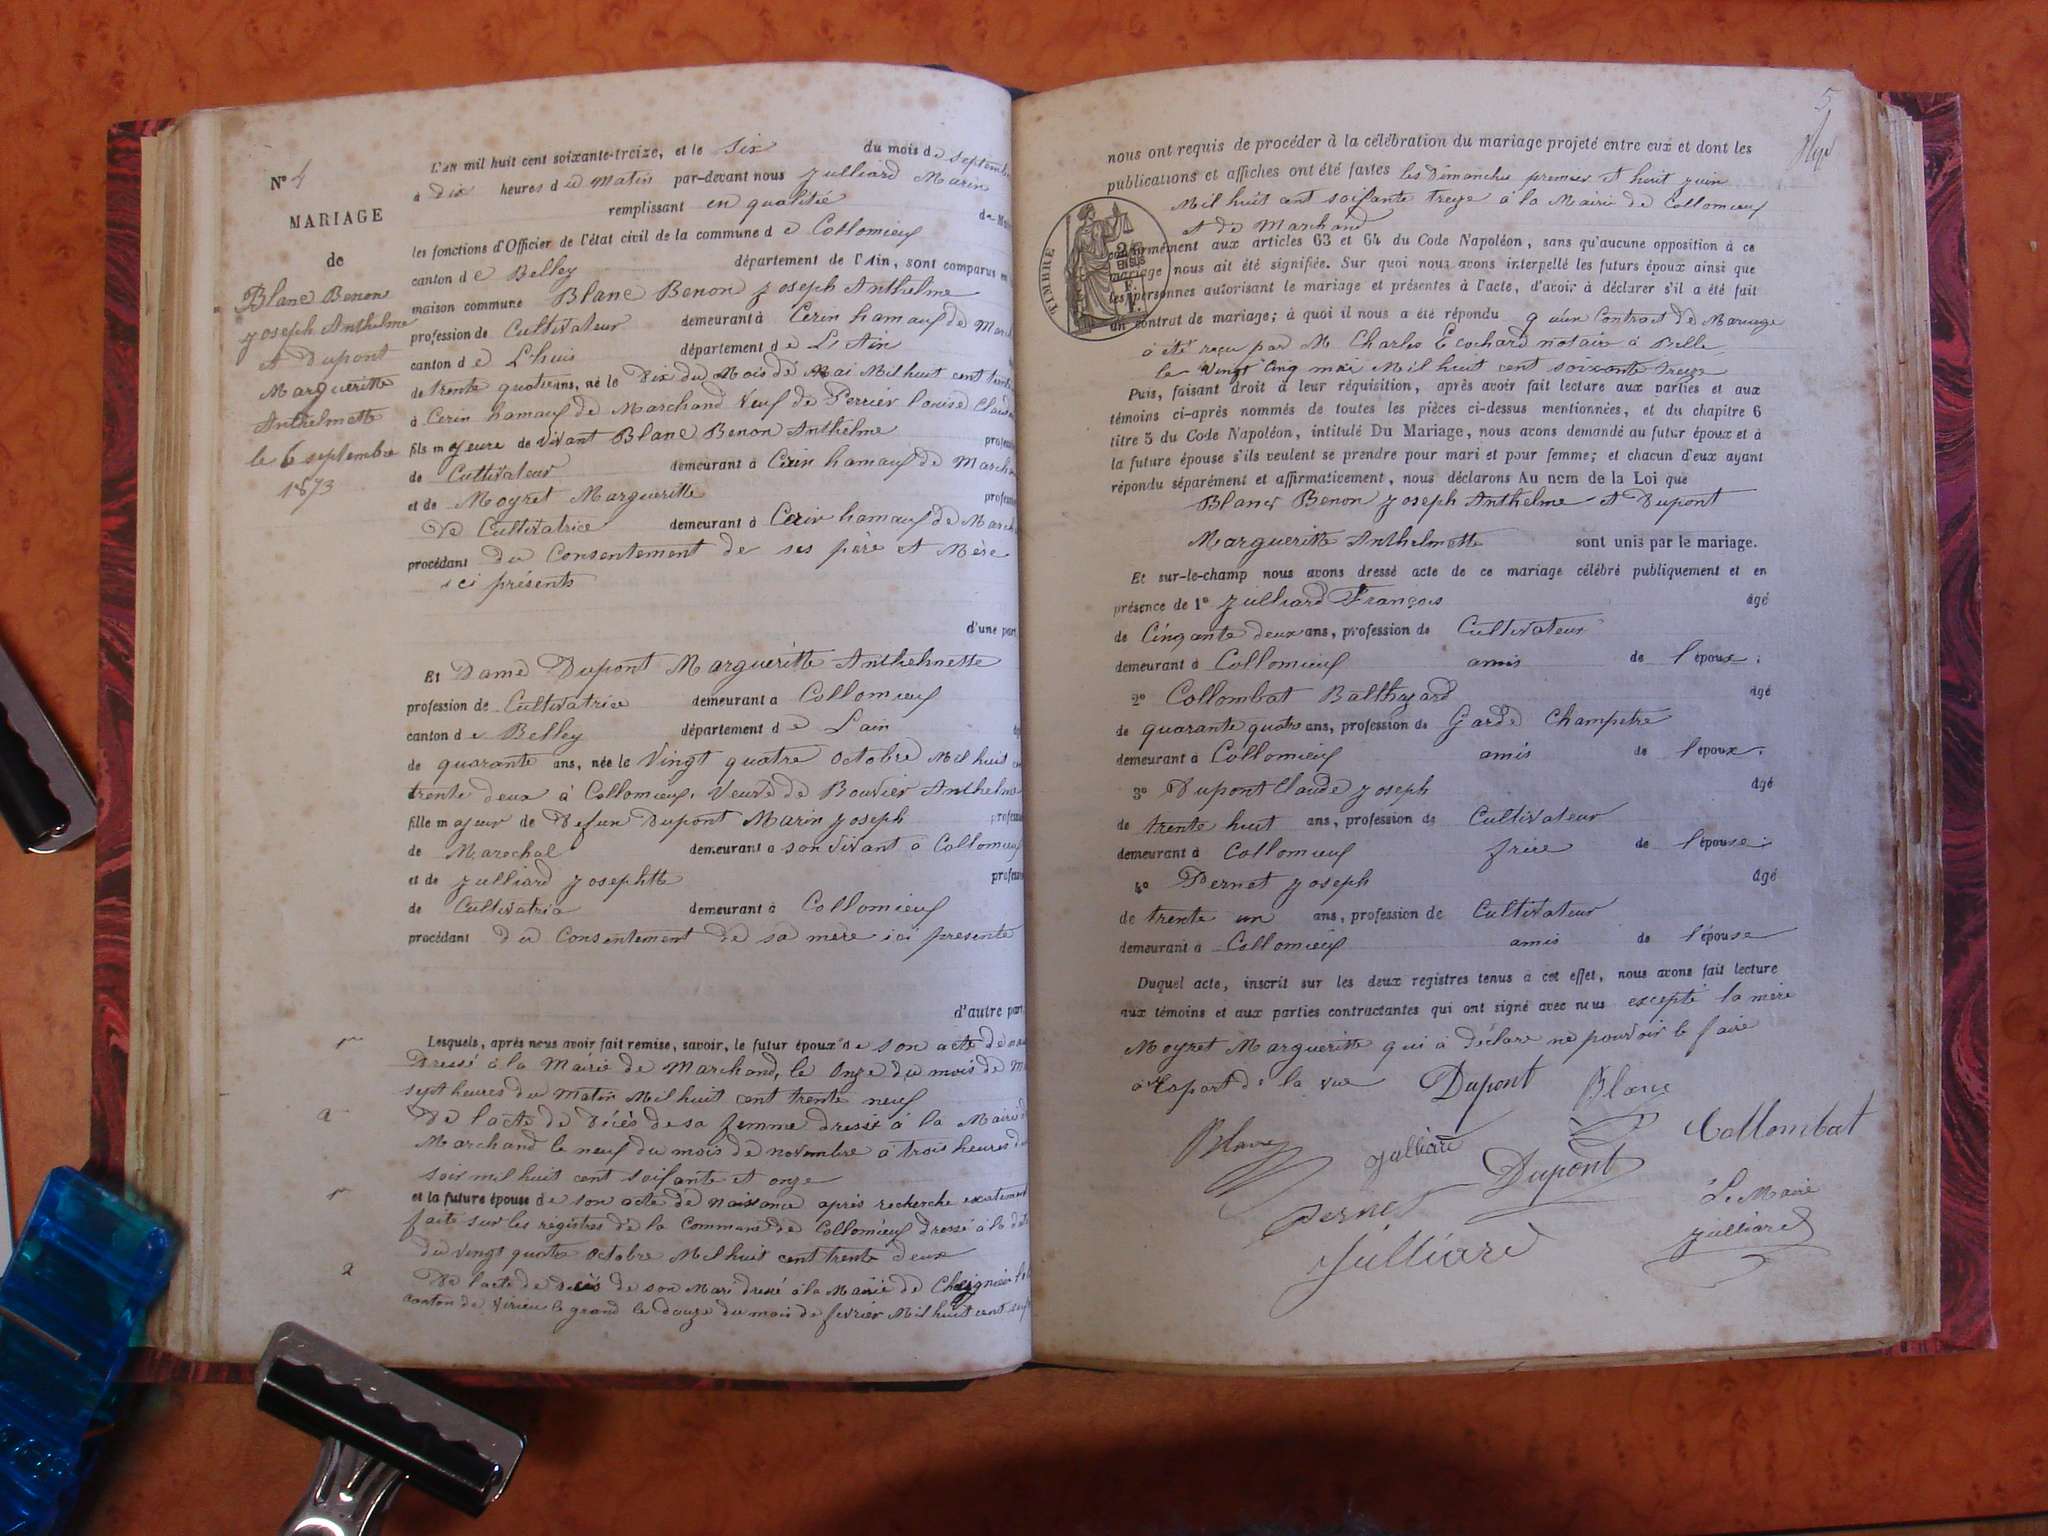 N° 4
MARIAGE
de
Blanc Benon
Joseph Anthelme
et Dupont
Margueritte
Anthelmette
le 6 septembre
1873
L'an mil huit cent soixante-treize, et le six du mois de septembre
à dix heures du matin par-devant nous Julliard Marin
remplissant en qualitié de M
les fonctions d'Officier de l'état civil de la commune de Collomieux
canton de Belley département de l'Ain, sont comparus en
maison commune Blanc Benon Joseph Anthelme
profession de Cultivateur demeurant à Cerin hamaux de Marc
canton de L'huis département de L'Ain
de trente quatre ans, né le Dix du Mois de Mai Mil huit cent trente
à Cerin hamaux de Marchand Veuf de Perrier Louise Claud
fils majeure de vivant Blanc Benon Anthelme profess
de Cultivateur demeurant à Cerin hamaux de March
et de Moyret Margueritte profess
de Cultivatrice demeurant à Cerin hamaux de March
procédant du Consentement de ses père et Mère
ici présents
d'une part,
Et Dame Dupont Margueritte Anthelmette
profession de Cultivatrice demeurant à Collomieux
canton de Belley département de L'ain
de quarante ans, née le Vingt quatre Octobre Mil huit c
trente deux à Collomieux. Veuve de Bouvier Anthelme
fille majeur de Defun Dupont Marin Joseph profess
de Marechal demeurant à son vivant a Collomieux
et de Julliard Josephtte profess
de Cultivatrice demeurant à Collomieux
procédant du Consentement de sa mère ici presente
d'autre part,
1° Lesquels, après nous avoir fait remise, savoir, le futur époux de son acte de nais
Dressé à la Mairie de Marchand, le Onze du mois de M
sept heures du Matin Mil huit cent trente neuf
2 De l'acte de Décès de sa femme dressé à la Mairie d
Marchand le neuf du mois de novembre à trois heures d
soir mil huit cent soixante et onze
1° et la future épouse de son acte de naissance après recherche exatement
faite sur les régistres de la Commune de Collomieux dressé à la dat
du vingt quatre octobre Mil huit cent trente deux
2 De l'acte de Décés de son Mari dressé à la Mairie de Cheignieu la
canton de Virieu le grand le douze du mois de fevrier Mil huit cent
5
nous ont requis de procéder à la célébration du mariage projeté entre eux et dont les
publications et affiches ont été faites les Dimanches premier et huit juin
Mil huit cent soixante treize à la Mairie de Collomieux
et de Marchand
conformément aux articles 63 et 64 du Code Napoléon, sans qu'aucune opposition à ce
mariage nous ait été signifiée. Sur quoi nous avons interpellé les futurs époux ainsi que
les personnes autorisant le mariage et présentes à l'acte, d'avoir à déclarer s'il a été fait
un contrat de mariage; à quoi il nous a été répondu qu'un Contract de Mariage
à été reçu par M Charles Ecochard notaire à Belle
le vingt Cinq mai Mil huit cent soixante treize
TIMBRE
Puis, faisant droit à leur réquisition, après avoir fait lecture aux parties et aux
témoins ci-après nommés de toutes les pièces ci-dessus mentionnées, et du chapitre 6
titre 5 du Code Napoléon, intitulé Du Mariage, nous avons demandé au futur époux et à
la future épouse s'ils veulent se prendre pour mari et pour femme; et chacun d'eux ayant
répondu séparément et affirmativement, nous déclarons Au nom de la Loi que
Blanc Benon Joseph Anthelme et Dupont
Margueritte Anthelmette sont unis par le mariage.
Et sur-le-champ nous avons dressé acte de ce mariage célébré publiquement et en
présence de 1° Julliard François âgé
de Cinqante deux ans, profession de Cultivateur
demeurant à Collomieux amis de l'époux;
2° Collombat Balthazard âgé
de quarante quatre ans, profession de Garde Champetre
demeurant à Collomieux amis de l'époux;
3° Dupont Claude Joseph âgé
de trente huit ans, profession de Cultivateur
demeurant à Collomieux frère de l'épouse;
4° Pernet Joseph âgé
de trente un ans, profession de Cultivateur
demeurant à Collomieux amis de l'épouse
Duquel acte, inscrit sur les deux registres tenus à cet effet, nous avons fait lecture
aux témoins et aux parties contractantes qui ont signé avec nous excepté la mère
Moyret Margueritte qui à déclare ne pouvoir le faire
à Raport de la vue Dupont Blanc
Blanc Julliard Dupont Collombat
Pernet Le Maire
Julliard Julliard